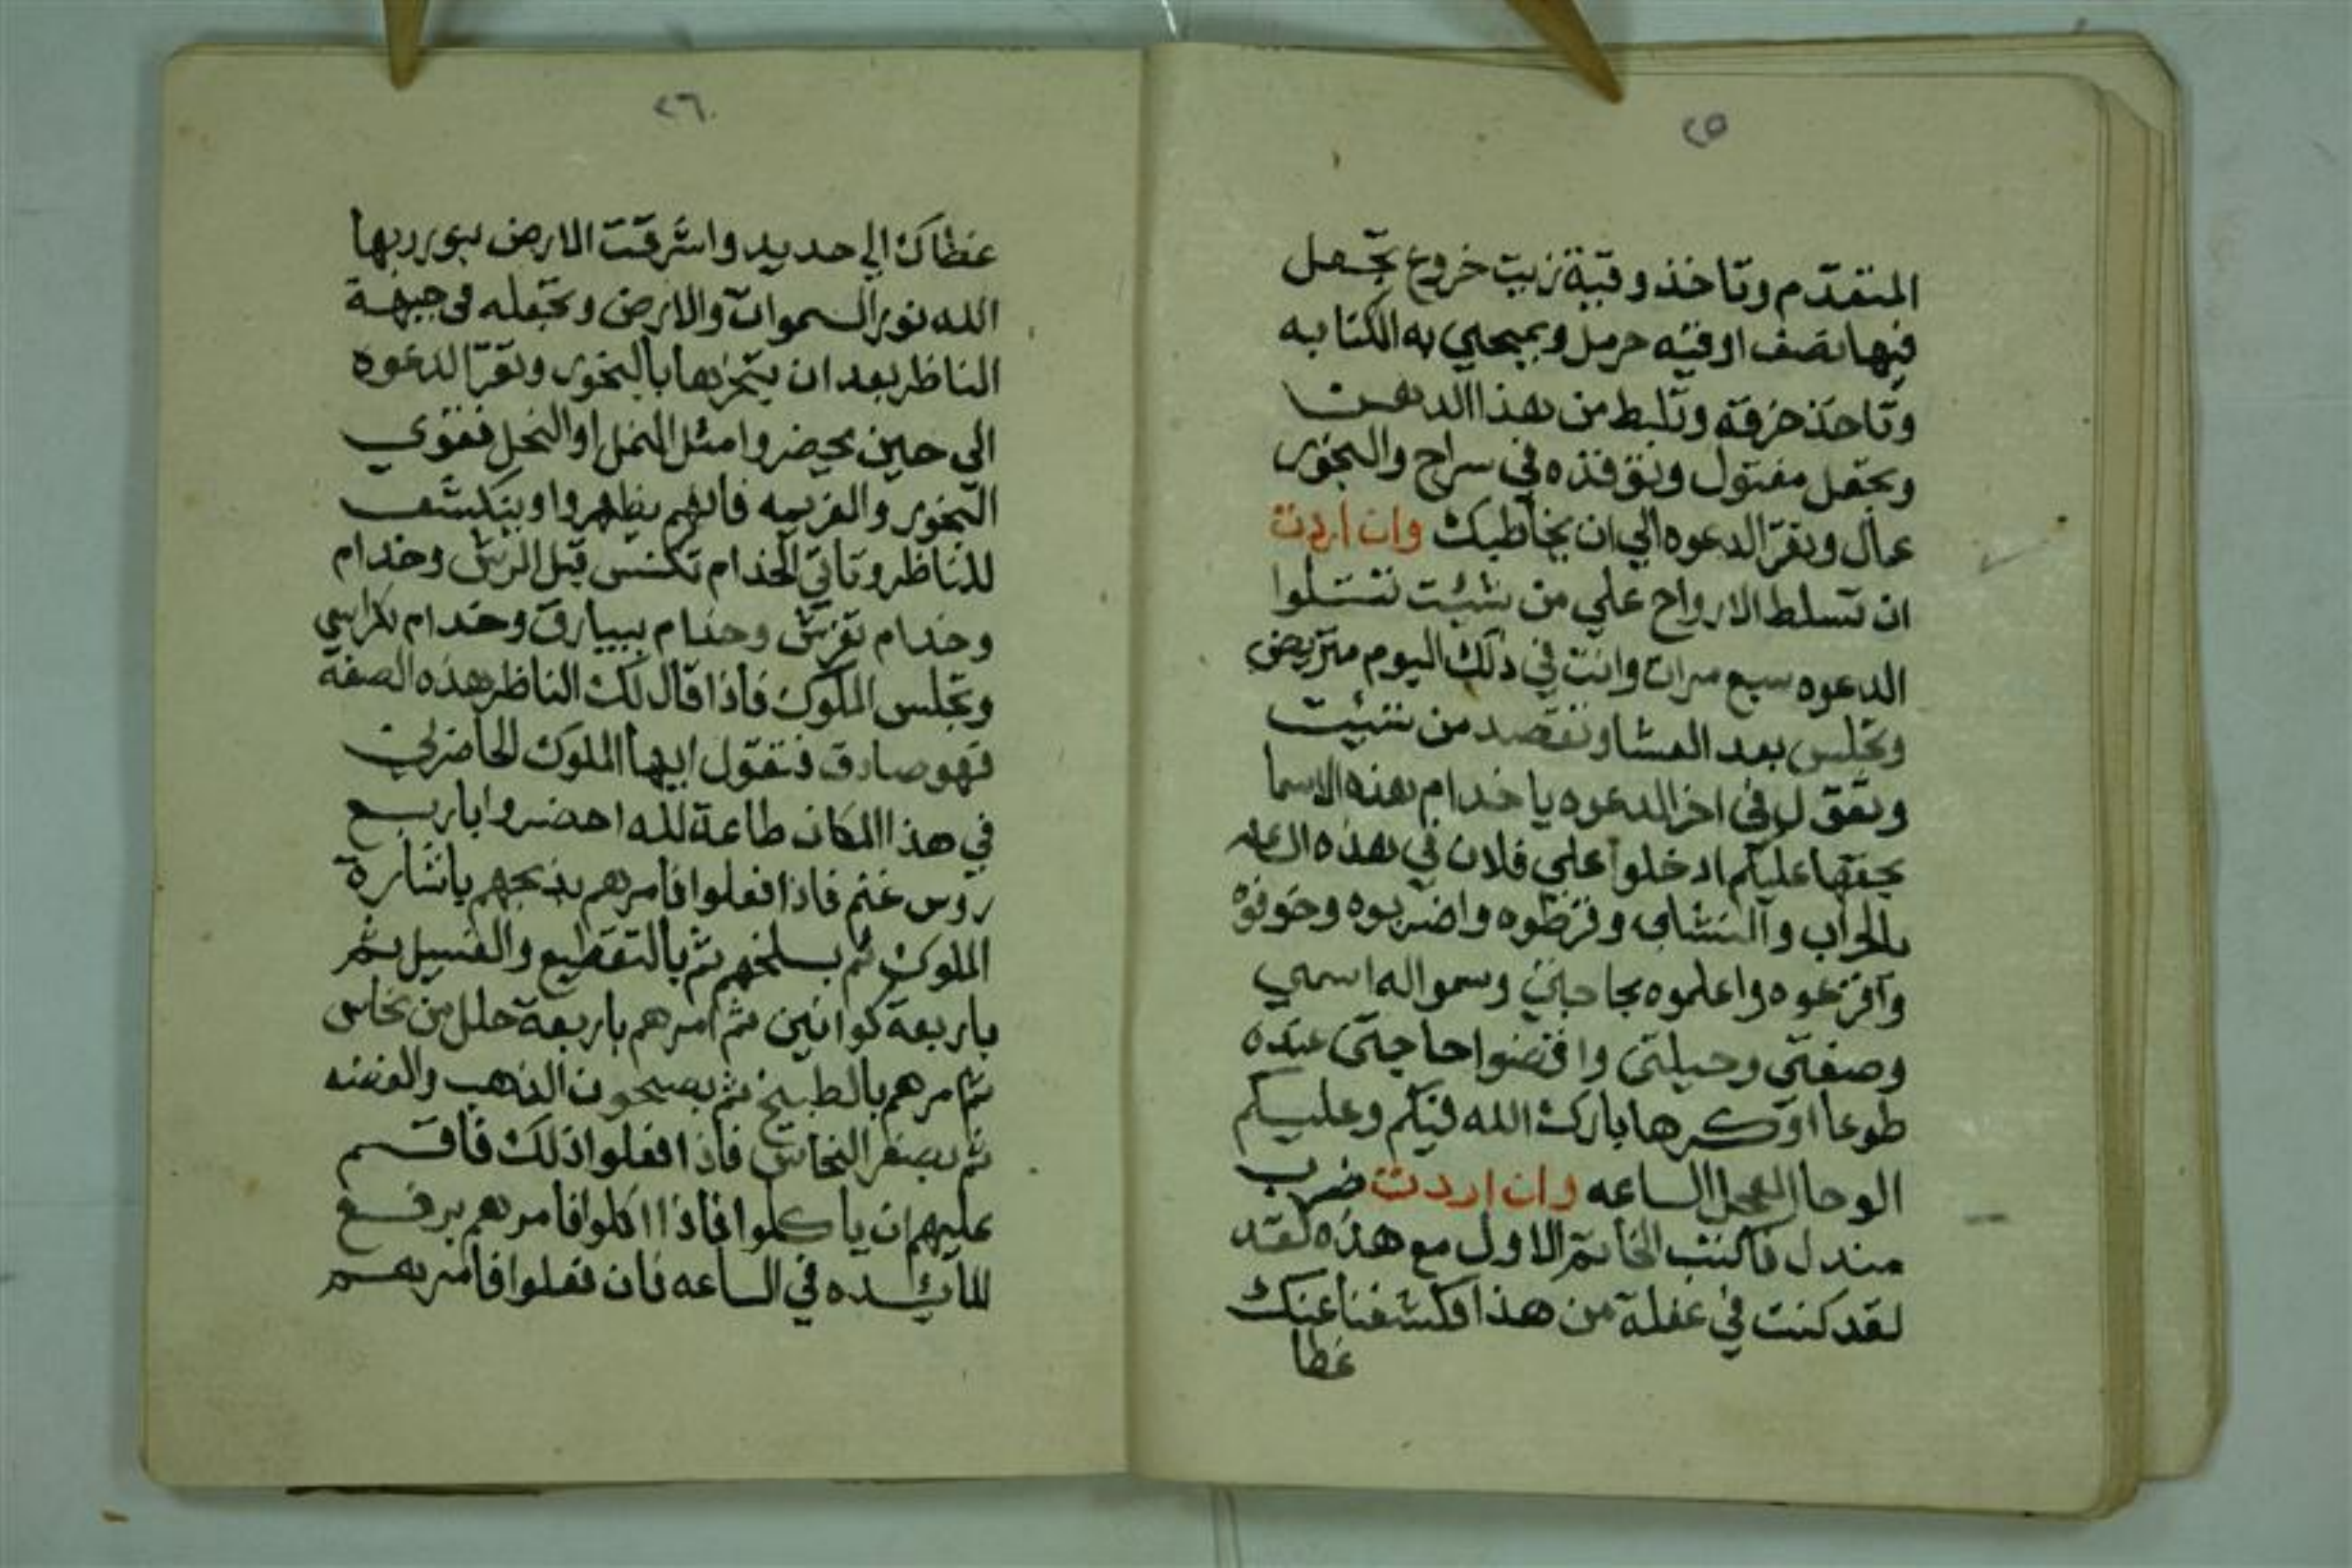 ٢٥
المتقدم وتاخذ وقية زيت خروع تجعل
فيها نصف اوقيه حرمل ويمحي به الكتابه
وتاخذ خرقه وتلبط من هذا الدهن
وتجعل مفتول وتوقده في سراج والبخور
عمال وتقرا الدعوه الي ان يخاطبك وان اردت
ان تسلط الارواح علي من شئت تتلوا
الدعوه سبع مرات وانت في ذلك اليوم متريض
وتجلس بعد العشا وتقصد من شئيت
وتقول في اخر الدعوه يا خدام هذه الاسما
بحقها عليكم ادخلوا علي فلان في هذه الساعه
بالحراب والنشاب وقرظوه واضربوه وخوفوه
وافزعوه واعلموه بحاجتي وسمواله اسمي
وصفتي وحيلتي واقضوا حاجتي عنده
طوعا اوكرها بارك الله فيكم وعليكم
الوحا العجل الساعه وان اردت ضرب
مندل فاكتب الخاتم الاول مع هذه لقد
لقد كنت في غفلة من هذا فكشفنا عنك
غطا
٢٦
غطاك الي حديد واشرقت الارض بنور ربها
الله نور السموات والارض وتجعله في جبهة
الناظر بعد ان يبخرها بالبخور وتقرا الدعوه
الي حين يحيضروا مثل النمل او النحل فقوي
البخور والعزيمه فانهم يظهروا وينكشف
للناظر وتاتي الخدام تكنس قبل الرش وخدام
وخدام تفرش وخدام ببيارق وخدام بكراسي
وتجلس الملوك فاذا قال لك الناظر هذه الصفه
فهو صادق فتقول ايها الملوك الحاضرين
في هذا المكان طاعة لله احضروا باربع
روس غنم فاذا فعلوا فامرهم بذبحهم باشارة
الملوك ثم بسلخهم ثم بالتقطيع والغسيل ثم
باربعة كوانين ثم امرهم باربعة حلل من نحاس
ثم مرهم بالطبيخ ثم بصحون الذهب والفضه
ثم بصفر النحاس فاذا فعلوا ذلك فاقسم
عليهم ان ياكلوا فاذا اكلوا فامرهم برفع
المائده في الساعه فان فعلوا فامرهم